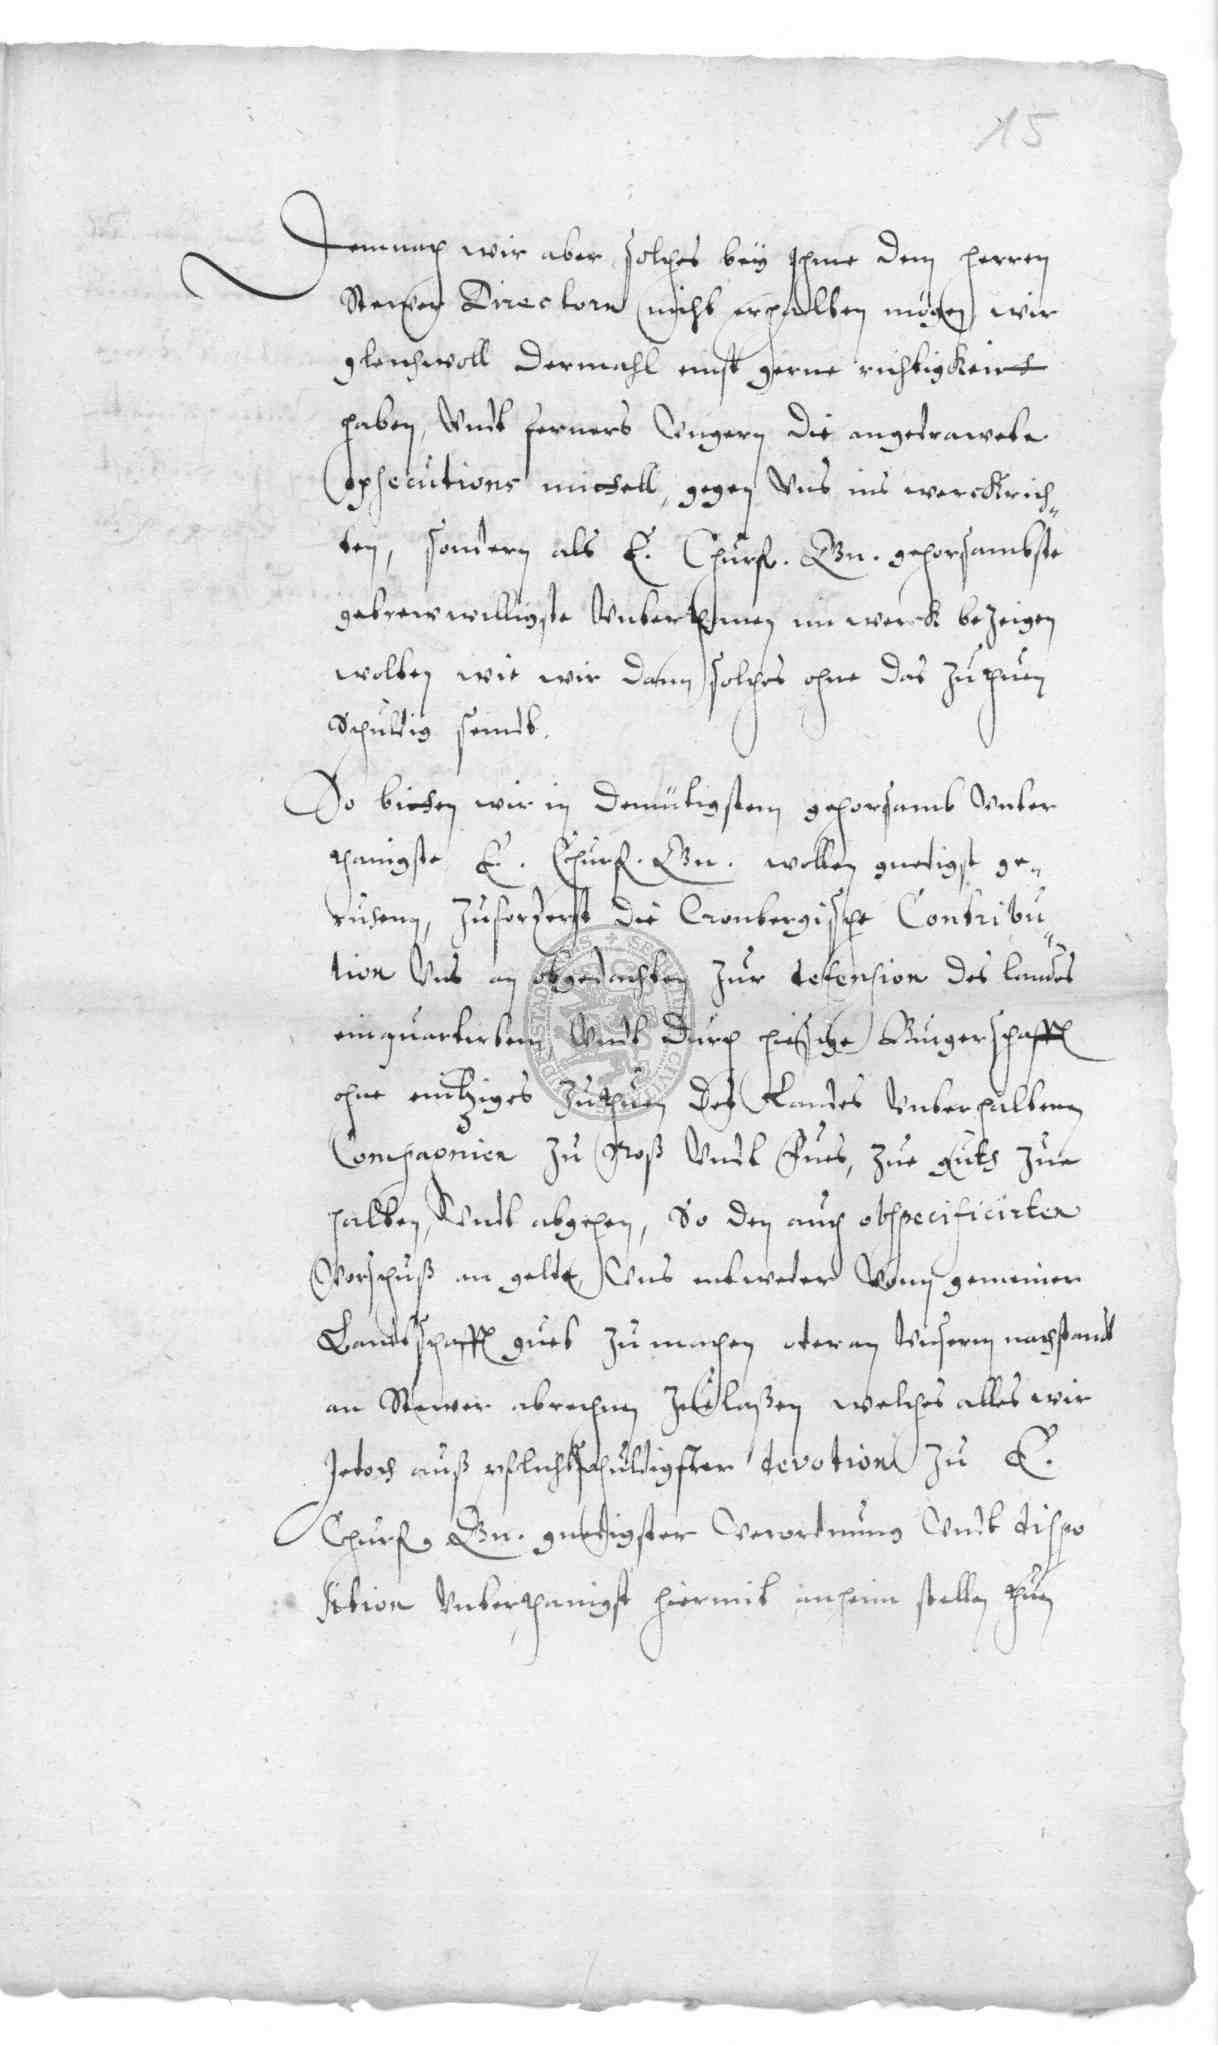 15
Demnach wir aber solches bey Ihme dem herren
Stewer Directore nicht erhalten mögen, wir
gleichwoll dermahl einst gerne richtigkeit
haben, Undt ferners Ungern die angedrawete
Exsecutions mittell, gegen Uns ins werck rich„
ten, sondern als E. Churf. Gn. gehorsambste
getrewwilligste Underthanen im werck bezeigen
wolten wie wir dann solches ohne das zu thuen
Schuldig seindt.
So bitten wir in demütigstem gehorsamb Unter
thanigste E. Churf. Gn. wollen gnedigst ge„
ruhenn, zuforderst die Cronbergische Contribu„
tion Uns an obgedachten zur defension des landes
einquartirten Undt durch hiesige Burgerschafft
ohne eintziges zuthuen des Landes Unterhaltenen
Compagnien zu Roß Undt Fues, zue guth zue
halten, Undt abgehen, So den auch obspecificirten
Vorschuß an gelde, Uns entweder Vonn gemeiner
Landtschafft guet zu machen oder an Unserm nachstandt
an Stewer abrechnen zue laßen welches alles wir
Jedoch auß pflichtschuldigster devotion zu E.
Churf. Gn. gnedigster Verordnung Undt dispo
sition Unterthanigst hiermit anheim stellen thun